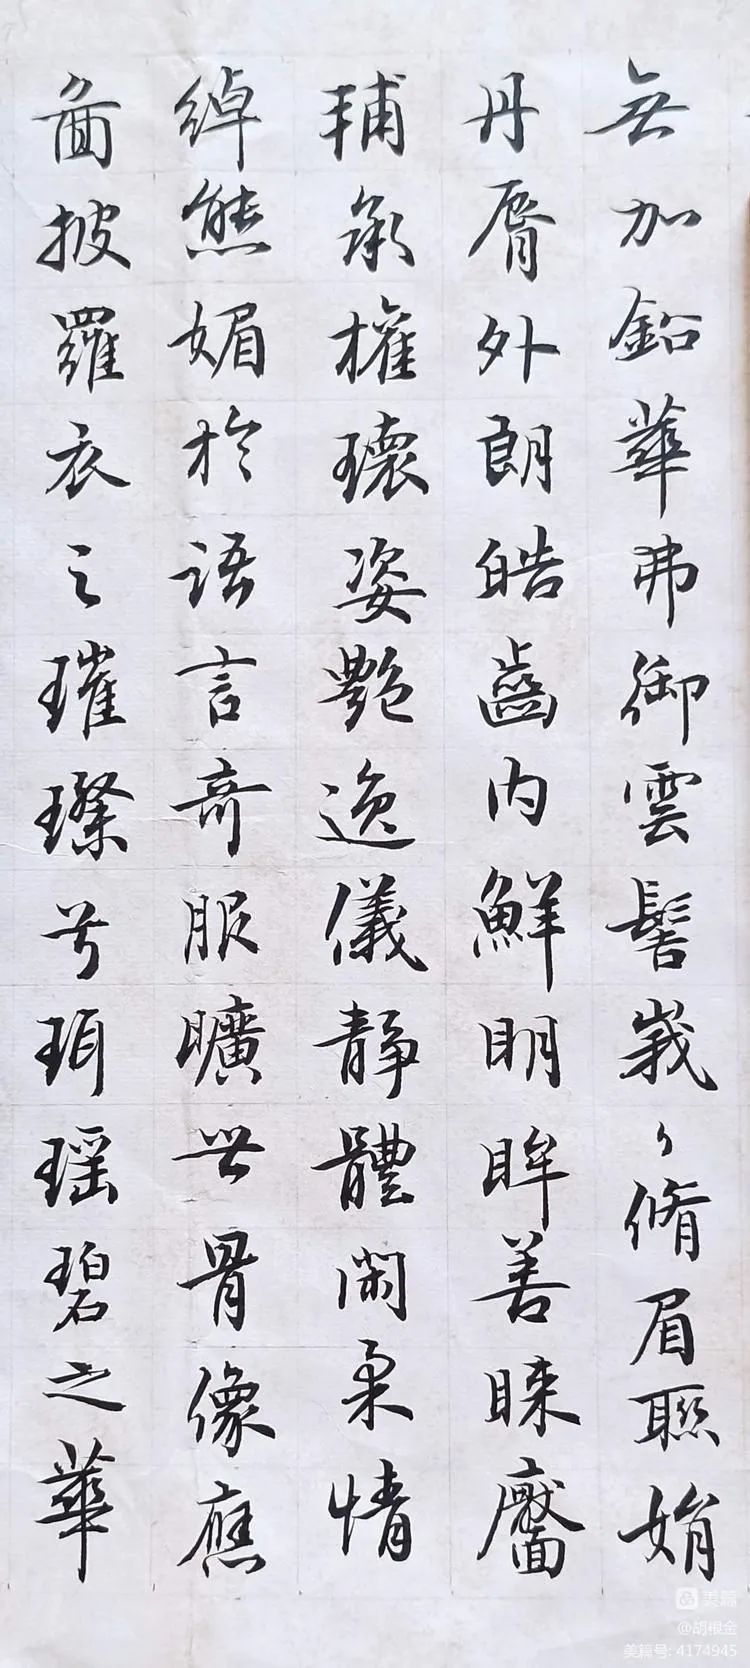 无加鉛華弗御雲髻峩々脩眉聯娟
丹脣外朗皓齒内鮮明眸善睞靨
輔承權瓌姿艷逸儀靜體閑柔情
綽態媚於語言奇服曠世骨像應
圖披羅衣之璀璨兮珥瑶碧之華
美篇
@胡根金
美篇号: 4174945